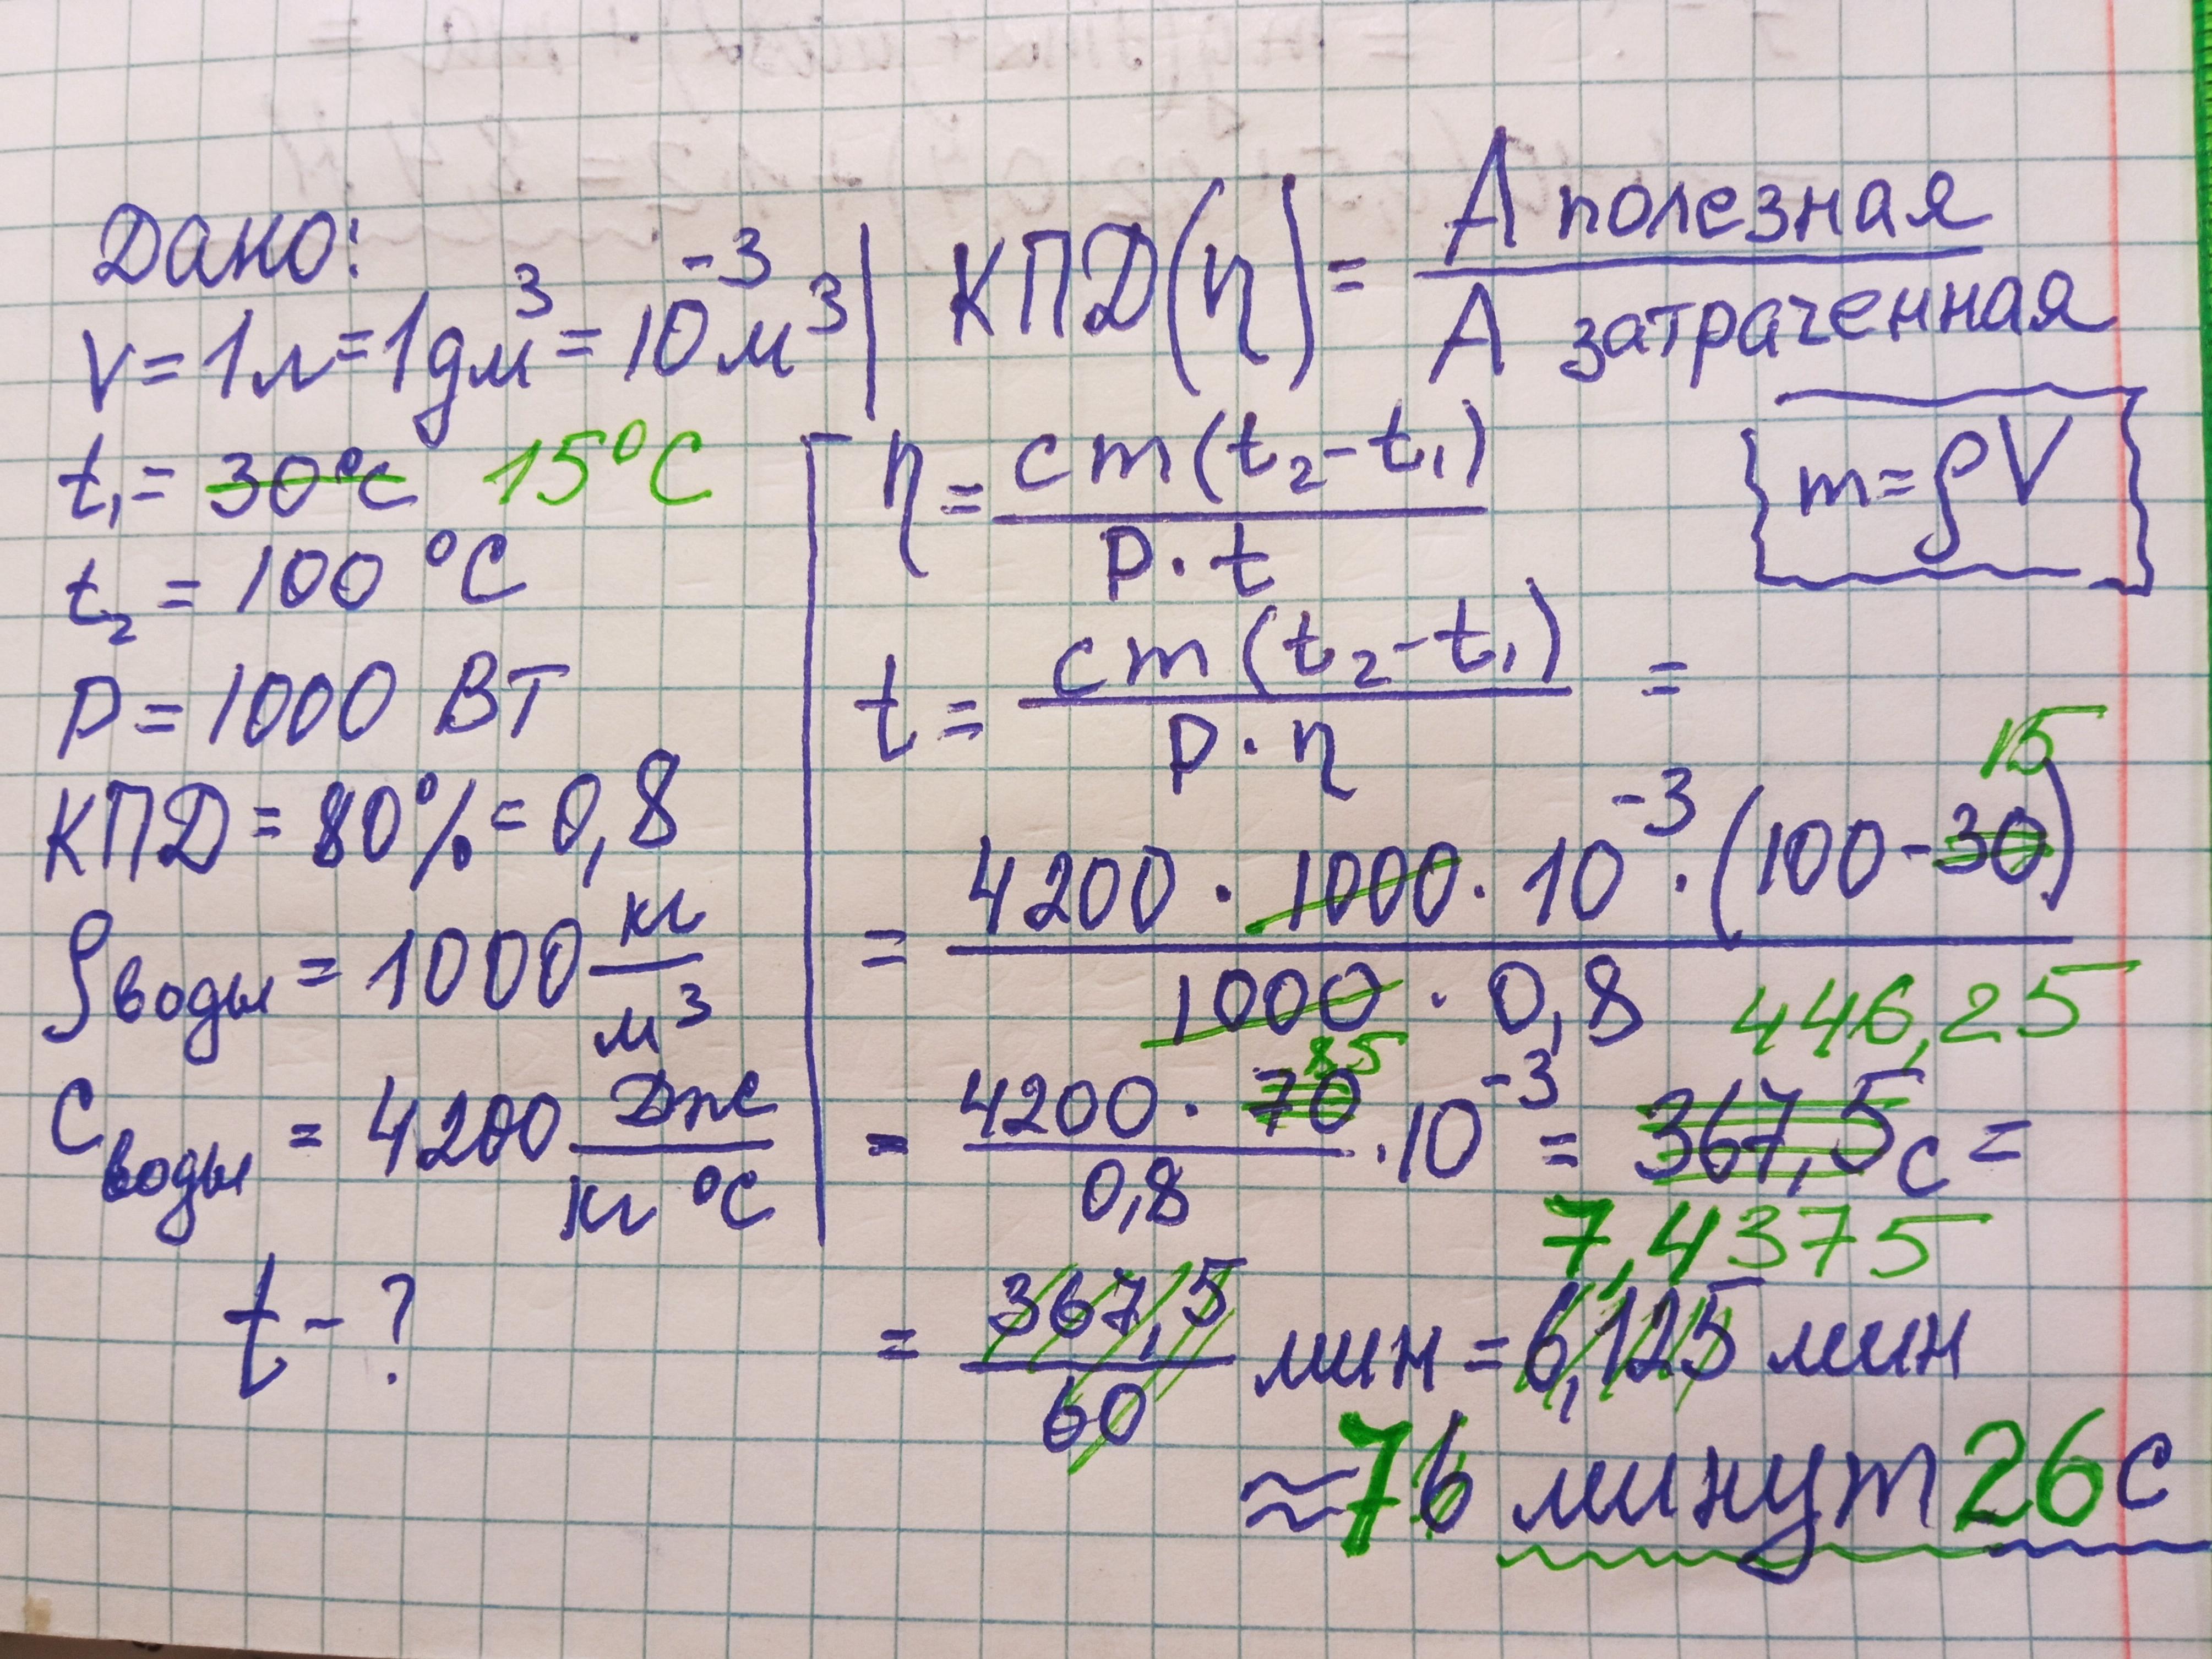 Дано:
V = 1л = 1дм³ = 10⁻³ м³
t₁ = 30°C 15°C
t₂ = 100 °C
P = 1000 Вт
КПД = 80% = 0,8
ρводы = 1000 кг/м³
Cводы = 4200 Дж/кг °C
t - ?
КПД(η) = A полезная / A затраченная
η = cm(t₂-t₁) / P·t
m = ρV
t = cm(t₂-t₁) / P·η =
15
= 4200 · 1000 · 10⁻³ · (100-30) / 1000 · 0,8
446,25
85
= 4200 · 70 / 0,8 · 10⁻³ = 367,5 с =
7,4375
= 367,5 / 60 мин = 6,125 мин
≈ 7 6 минут 26 с